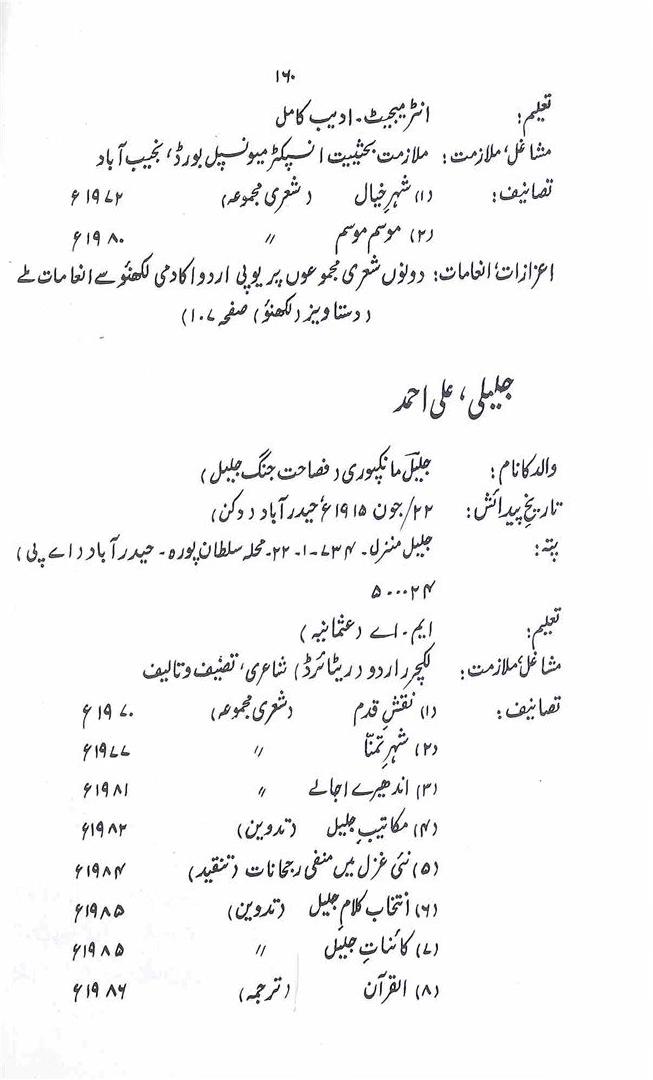 ۱۶۰
تعلیم: انٹرمیجیٹ۔ ادیب کامل
مشاغل، ملازمت: ملازمت بحثییت انسپکٹر میونسپل بورڈ، نجیب آباد
تصانیف: (۱) شہرِ خیال (شعری مجموعہ) ۱۹۷۲ء
(۲) موسم موسم 〃 ۱۹۸۰ء
اعزازات، انعامات: دونوں شعری مجموعوں پر یوپی اردو اکادمی لکھنؤ سے انعامات ملے
(دستاویز (لکھنؤ) صفحہ ۱۰۷)
جلیلی، علی احمد
والد کا نام: جلیلؔ مانکپوری (فصاحت جنگ جلیل)
تاریخِ پیدائش: ۲۲/جون ۱۹۱۵ء حیدرآباد (دکن)
پتہ: جلیل منزل۔ ۷۳۴-۱-۲۲۔ محلہ سلطان پورہ۔ حیدرآباد (اے پی)
۵۰۰۰۲۴
تعلیم: ایم۔ اے (عثمانیہ)
مشاغل، ملازمت: لکچرر اردو (ریٹائرڈ) شاعری، تصنیف و تالیف
تصانیف: (۱) نقشِ قدم (شعری مجموعہ) ۱۹۷۰ء
(۲) شہرِ تمنّا 〃 ۱۹۷۷ء
(۳) اندھیرے اجالے 〃 ۱۹۸۱ء
(۴) مکاتیبِ جلیل (تدوین) ۱۹۸۲ء
(۵) نئی غزل میں منفی رجحانات (تنقید) ۱۹۸۴ء
(۶) انتخاب کلامِ جلیل (تدوین) ۱۹۸۵ء
(۷) کائناتِ جلیل 〃 ۱۹۸۵ء
(۸) القرآن (ترجمہ) ۱۹۸۶ء